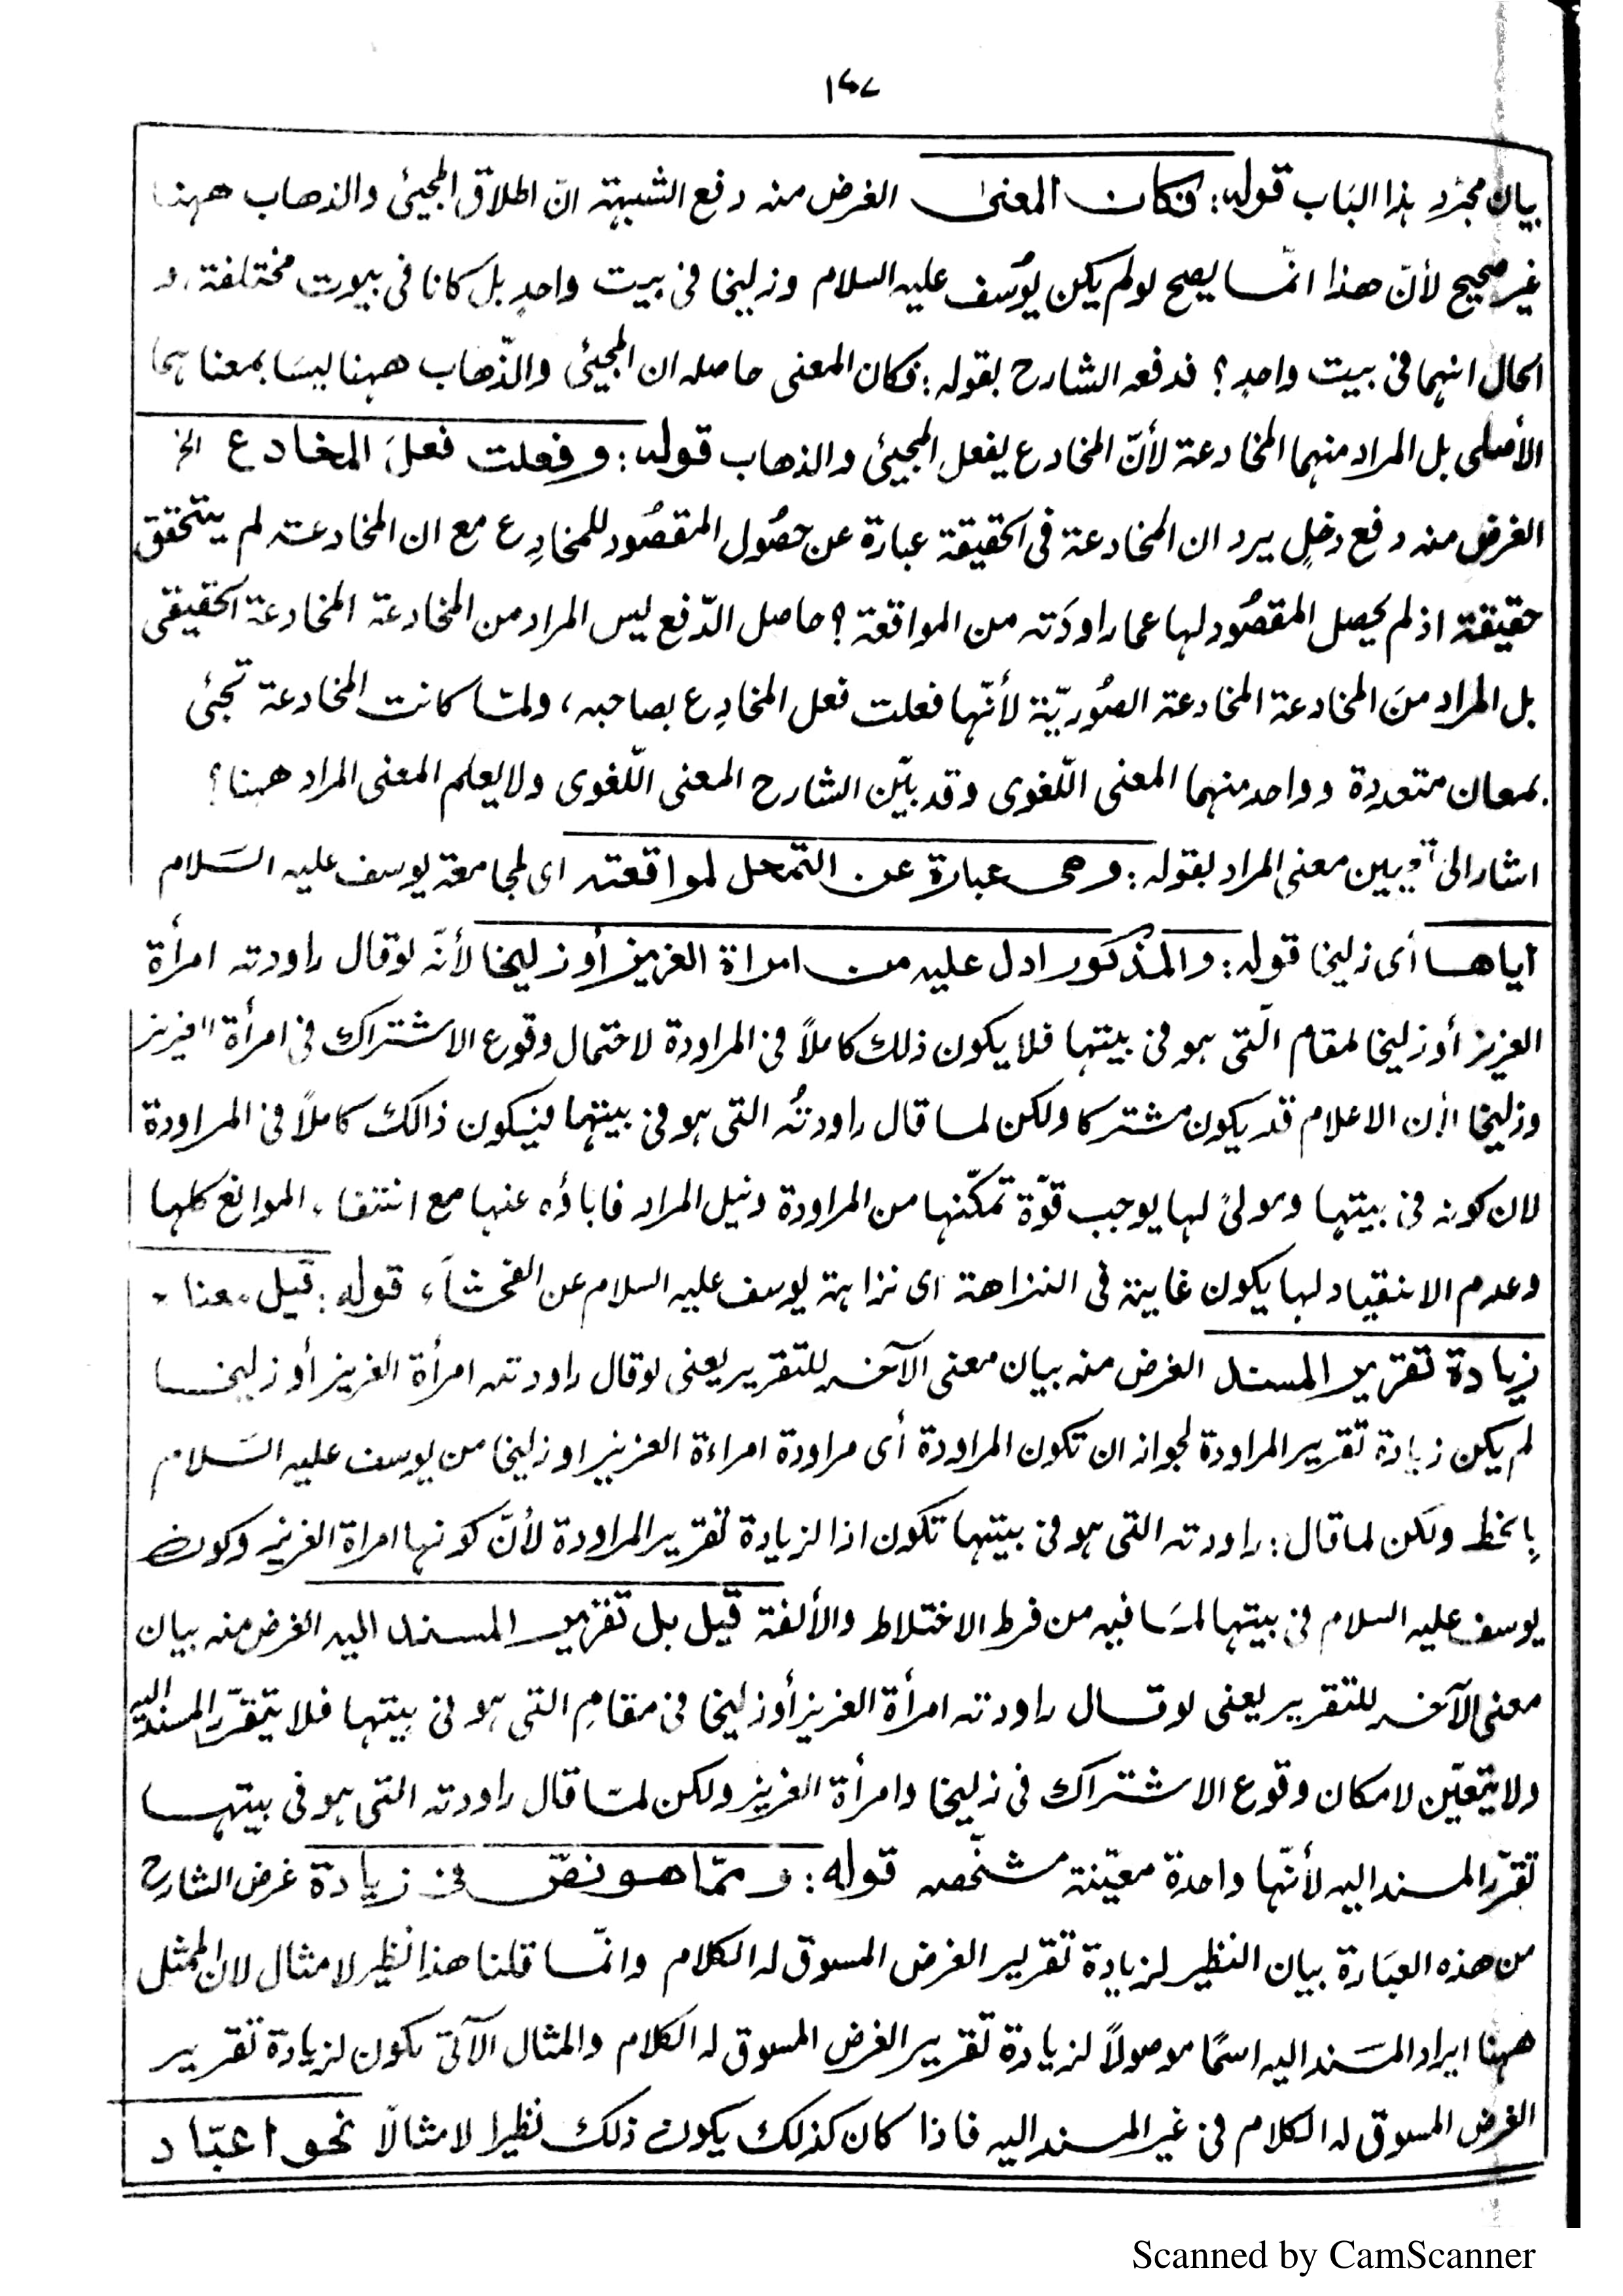 ١٤٧
بيان مجرد هذا الباب قوله: فكان المعنى الغرض منه دفع الشبهة انّ اطلاق المجيئ والذهاب ههنا
غير صحيح لأنّ هذا انّما يصح لو لم يكن يوُسف عليه السلام وزليخا فى بيت واحدٍ بل كانا فى بيوت مختلفة، و
الحال انهما فى بيت واحدٍ؟ فدفعه الشارح بقوله: فكان المعنى حاصله ان المجيئ والذّهاب ههنا ليسَا بمعناهما
الأصلى بل المراد منهما المخادعة لأنّ المخادع يفعل المجيئ والذهاب قوله: وفعلت فعلَ المخادع الخ
الغرض منه دفع دخلٍ يرد ان المخادعة فى الحقيقة عبارة عن حصُول المقصُود للمخادِع مع ان المخادعة لم يتحقق
حقيقة اذ لم يحصل المقصُود لها عما راودَته من المواقعة؟ حاصل الدّفع ليس المراد من المخادعة المخادعة الحقيقى
بل المراد منَ المخادعة المخادعة الصُوريّة لأنّها فعلت فعل المخادِع بصاحبه، ولمّا كانت المخادعة تجئى
بمعان متعددة وواحد منهما المعنى اللّغوى وقد بيّن الشارح المعنى اللّغوى ولا يعلم المعنى المراد ههنا؟
اشار الى تعيين معنى المراد بقوله: وهى عبارة عن التمحل لمواقعته اى لمجامعة يوسف عليه السَلام
اياها أى زليخا قوله: والمذكور ادل عليه من امراة العزيز أو زليخا لأنّه لو قال راودته امرأة
العزيز أو زليخا لمقام الّتى هو فى بيتها فلا يكون ذلك كاملاً فى المراودة لاحتمال وقوع الاشتراك فى امرأة العزيز
وزليخا لأن الاعلام قد يكون مشتركا ولكن لما قال راودتُه التى هو فى بيتها فيكون ذالك كاملاً فى المراودة
لان كونه فى بيتها ومولىً لها يوجب قوّة تمكّنها من المراودة ونيل المراد فاباؤه عنها مع انتفاء الموانع كلها
وعدم الانقياد لها يكون غاية فى النزاهة اى نزاهة يوسف عليه السلام عن الفحشآء قوله: قيل معناه
زيادة تقرير المسند الغرض منه بيان معنى الآخر للتقرير يعنى لو قال راودته امرأة العزيز أو زليخا
لم يكن زيادة تقرير المراودة لجواز ان تكون المراودة أى مراودة امراءة العزيز او زليخا من يوسف عليه السَلام
بالخط ولكن لما قال: راودته التى هو فى بيتها تكون اذا لزيادة تقرير المراودة لأنّ كونها امراة العزيز وكون
يوسف عليه السلام فى بيتها لمَا فيه من فرط الاختلاط والألفة قيل بل تقرير المسند اليه الغرض منه بيان
معنى الآخر للتقرير يعنى لو قال راودته امرأة العزيز أو زليخا فى مقامِ التى هو فى بيتها فلا يتقرّر المسند اليه
ولا يتعيّن لامكان وقوع الاشتراك فى زليخا وامرأة العزيز ولكن لمّا قال راودته التى هو فى بيتها
تقرّر المسند اليه لأنّها واحدة معيّنة مشخّصه قوله: وممّا هو نصّ فى زيادة غرض الشارح
من هذه العبَارة بيان النظير لزيادة تقرير الغرض المسوق له الكلام وانّما قلنا هذا نظير لا مثال لان الممثل
ههنا ايراد المسَند اليه اسمًا موصولاً لزيادة تقرير الغرض المسوق له الكلام والمثال الآتى يكون لزيادة تقرير
الغرض المسوق له الكلام فى غير المسند اليه فاذا كان كذلك يكون ذلك نظيرا لا مثالًا نحو اعبّاد
Scanned by CamScanner